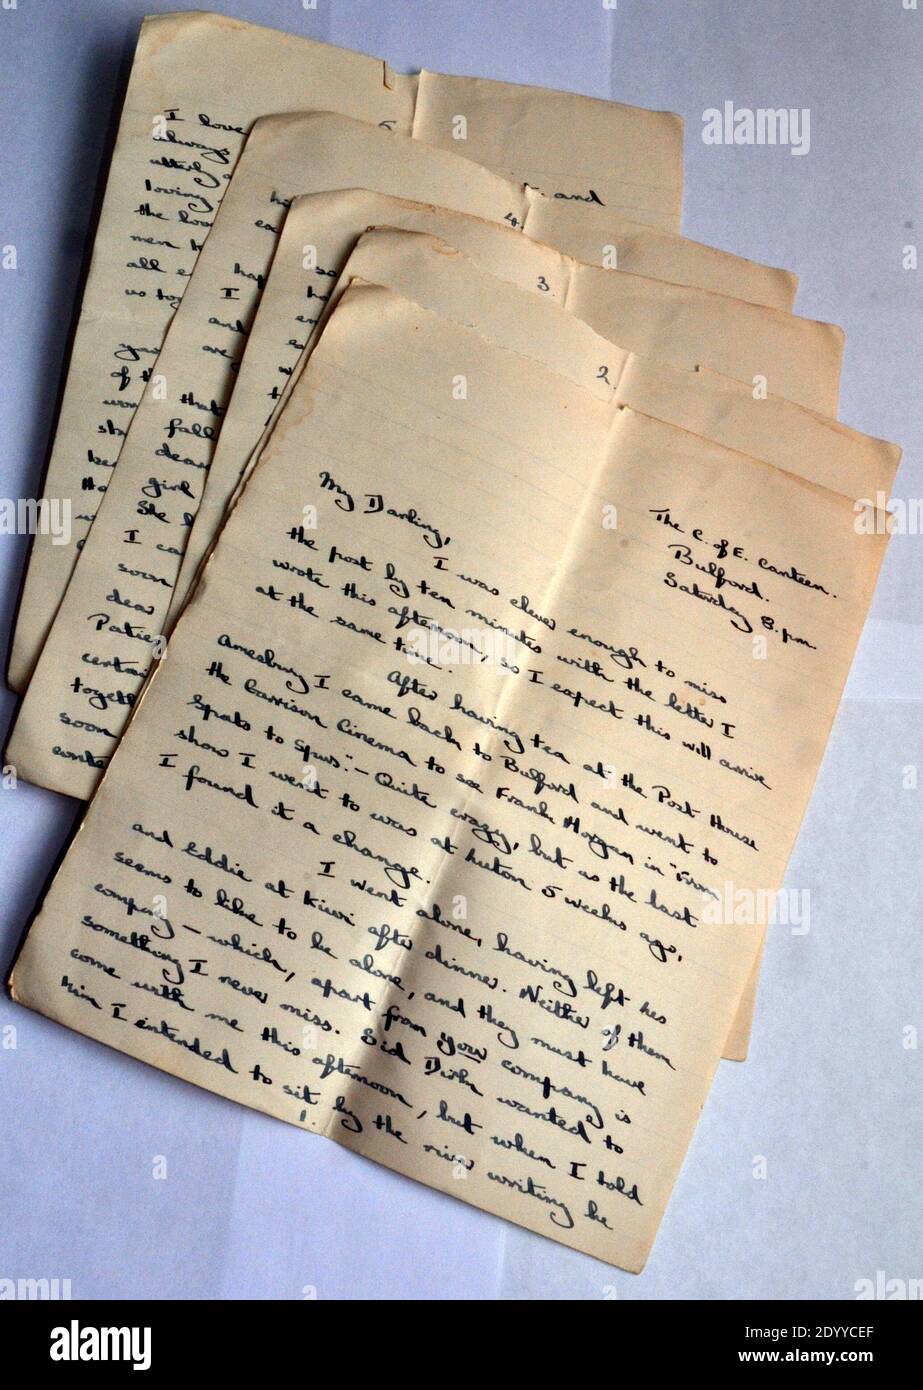 The C. of E. Canteen.
Bulford.
Saturday 8. pm.
My Darling,
I was clever enough to miss
the post by ten minutes with the letter I
wrote this afternoon, so I expect this will arrive
at the same time.
After having tea at the Post House
Amesbury I came back to Bulford and went to
the Garrison Cinema to see Frank Morgan in "From
Spats to Spurs". – Quite crazy, but as the last
show I went to was at Luton 5 weeks ago,
I found it a change.
I went alone, having left
and Eddie at Kiwi after dinner. Neither of them
seems to like to be alone, and they must have
company – which, apart from your company is
something I never miss. Sid wanted to
come with me this afternoon, but when I told
him I intended to sit by the river writing he
1.
2.
3.
4.
5
I love
always
utterly
loving
and
the
men
all
us
of the
I
and
are
that
fall
dear
girl
She
I
soon
dear
certain
togeth
soon
alamy
Image ID: 2DYYCEF
www.alamy.com